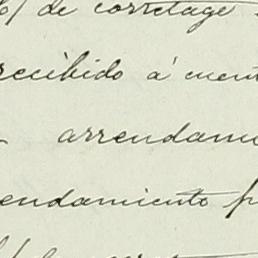 de corretage
recibido á
arrendam
endamiento p